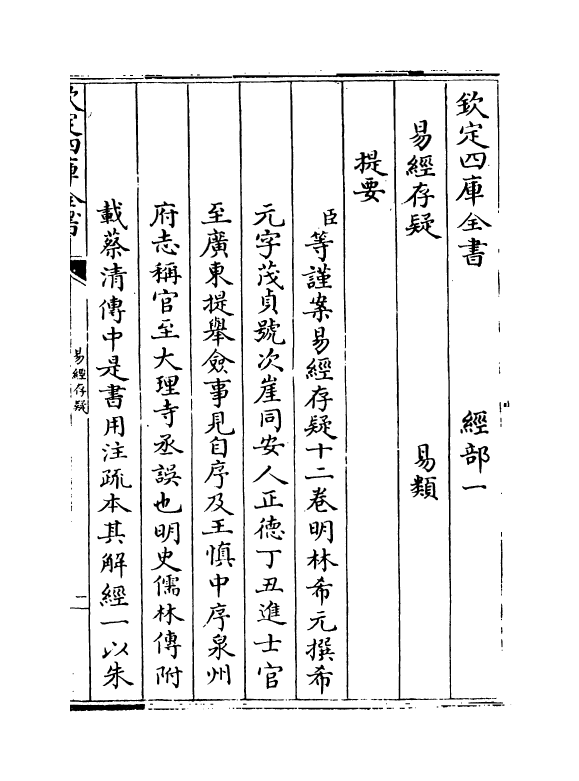 欽定四庫全書　經部一
易經存疑　易類
提要
臣等謹案易經存疑十二卷明林希元撰希
元字茂貞號次崖同安人正德丁丑進士官
至廣東提舉僉事見自序及王慎中序泉州
府志稱官至大理寺丞誤也明史儒林傳附
載蔡清傳中是書用注疏本其解經一以朱
欽定四庫全書
易經存疑
二